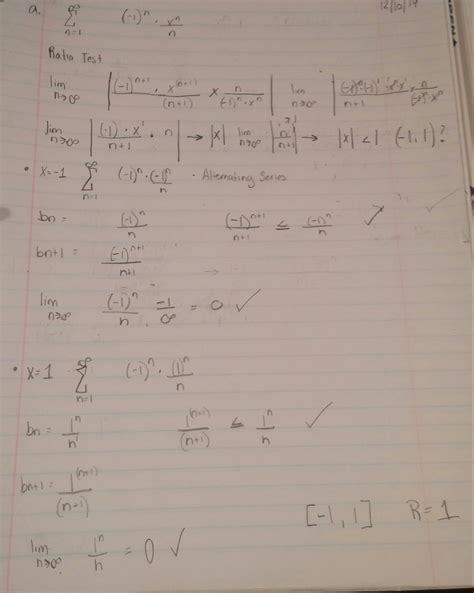 12/10/19
a. ∞ Σ n=1 (-1)^n · x^n/n
Ratio Test
lim n→∞ | (-1)^{n+1} · x^{(n+1)}/(n+1) × n/((-1)^n · x^n) | lim n→∞ | (-1)^n·(-1)^1 · x^n·x^1/n+1 × n/((-1)^n · x^n) |
lim n→∞ | (-1) · x^1/n+1 · n | → |x| lim n→∞ | n/n+1 | → |x| < 1 (-1,1)?
• x=-1 ∞ Σ n=1 (-1)^n · (-1)^n/n · Alternating Series
bn = (-1)^n/n (-1)^{n+1}/n+1 ≤ (-1)^n/n ✓
bn+1 = (-1)^{n+1}/n+1
lim n→∞ (-1)^n/n -1/∞ = 0 ✓
• x=1 ∞ Σ n=1 (-1)^n · (1)^n/n
bn = 1^n/n 1^{(n+1)}/(n+1) ≤ 1^n/n ✓
bn+1 = 1^{(n+1)}/(n+1)
[-1,1] R=1
lim n→∞ 1^n/n = 0 ✓